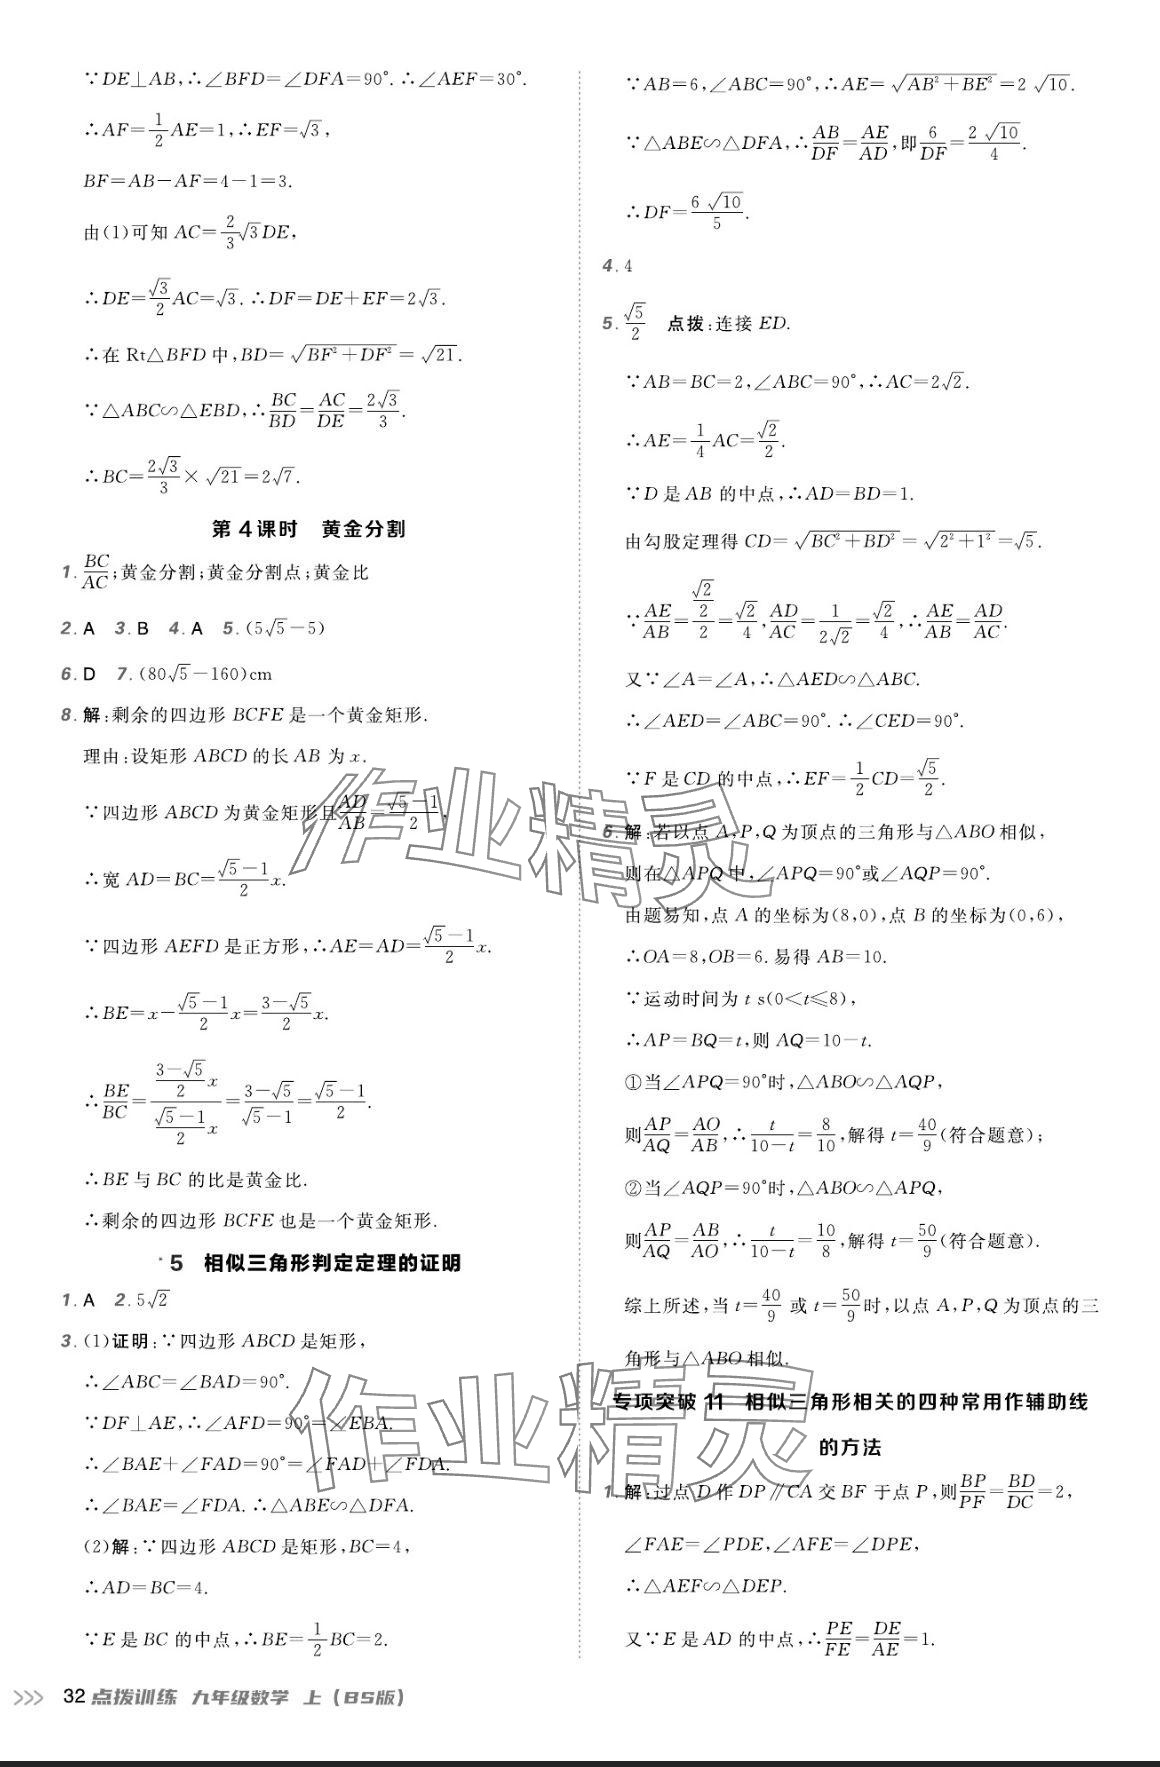 ∵DE⊥AB,∴∠BFD=∠DFA=90°.∴∠AEF=30°.
∴AF=1/2AE=1,∴EF=√3,
BF=AB-AF=4-1=3.
由(1)可知 AC=2/3√3DE,
∴DE=√3/2AC=√3.∴DF=DE+EF=2√3.
∴在 Rt△BFD 中,BD=√(BF²+DF²)=√21.
∵△ABC∽△EBD,∴BC/BD=AC/DE=2√3/3.
∴BC=2√3/3×√21=2√7.
第 4 课时 黄金分割
1. BC/AC;黄金分割;黄金分割点;黄金比
2. A 3. B 4. A 5. (5√5-5)
6. D 7. (80√5-160)cm
8. 解:剩余的四边形 BCFE 是一个黄金矩形.
理由:设矩形 ABCD 的长 AB 为 x.
∵四边形 ABCD 为黄金矩形且AD/AB=(√5-1)/2,
∴宽 AD=BC=(√5-1)/2x.
∵四边形 AEFD 是正方形,∴AE=AD=(√5-1)/2x.
∴BE=x-(√5-1)/2x=(3-√5)/2x.
∴BE/BC=((3-√5)/2x)/((√5-1)/2x)=(3-√5)/(√5-1)=(√5-1)/2.
∴BE 与 BC 的比是黄金比.
∴剩余的四边形 BCFE 也是一个黄金矩形.
*5 相似三角形判定定理的证明
1. A 2. 5√2
3. (1)证明:∵四边形 ABCD 是矩形,
∴∠ABC=∠BAD=90°.
∵DF⊥AE,∴∠AFD=90°=∠EBA.
∴∠BAE+∠FAD=90°=∠FAD+∠FDA.
∴∠BAE=∠FDA.∴△ABE∽△DFA.
(2)解:∵四边形 ABCD 是矩形,BC=4,
∴AD=BC=4.
∵E 是 BC 的中点,∴BE=1/2BC=2.
∵AB=6,∠ABC=90°,∴AE=√(AB²+BE²)=2√10.
∵△ABE∽△DFA,∴AB/DF=AE/AD,即6/DF=2√10/4.
∴DF=6√10/5.
4. 4
5. √5/2 点拨:连接 ED.
∵AB=BC=2,∠ABC=90°,∴AC=2√2.
∴AE=1/4AC=√2/2.
∵D 是 AB 的中点,∴AD=BD=1.
由勾股定理得 CD=√(BC²+BD²)=√(2²+1²)=√5.
∵AE/AB=(√2/2)/2=√2/4,AD/AC=1/(2√2)=√2/4,∴AE/AB=AD/AC.
又∵∠A=∠A,∴△AED∽△ABC.
∴∠AED=∠ABC=90°.∴∠CED=90°.
∵F 是 CD 的中点,∴EF=1/2CD=√5/2.
6. 解:若以点 A,P,Q 为顶点的三角形与△ABO 相似,
则在△APQ 中,∠APQ=90°或∠AQP=90°.
由题易知,点 A 的坐标为(8,0),点 B 的坐标为(0,6),
∴OA=8,OB=6.易得 AB=10.
∵运动时间为 t s(0<t≤8),
∴AP=BQ=t,则 AQ=10-t.
①当∠APQ=90°时,△ABO∽△AQP,
则AP/AQ=AO/AB,∴t/(10-t)=8/10,解得 t=40/9(符合题意);
②当∠AQP=90°时,△ABO∽△APQ,
则AP/AQ=AB/AO,∴t/(10-t)=10/8,解得 t=50/9(符合题意).
综上所述,当 t=40/9 或 t=50/9时,以点 A,P,Q 为顶点的三
角形与△ABO 相似.
专项突破 11 相似三角形相关的四种常用作辅助线
的方法
1. 解:过点 D 作 DP∥CA 交 BF 于点 P,则BP/PF=BD/DC=2,
∠FAE=∠PDE,∠AFE=∠DPE,
∴△AEF∽△DEP.
又∵E 是 AD 的中点,∴PE/FE=DE/AE=1.
>>> 32 点拨训练 九年级数学 上（BS版）
作业精灵
作业精灵